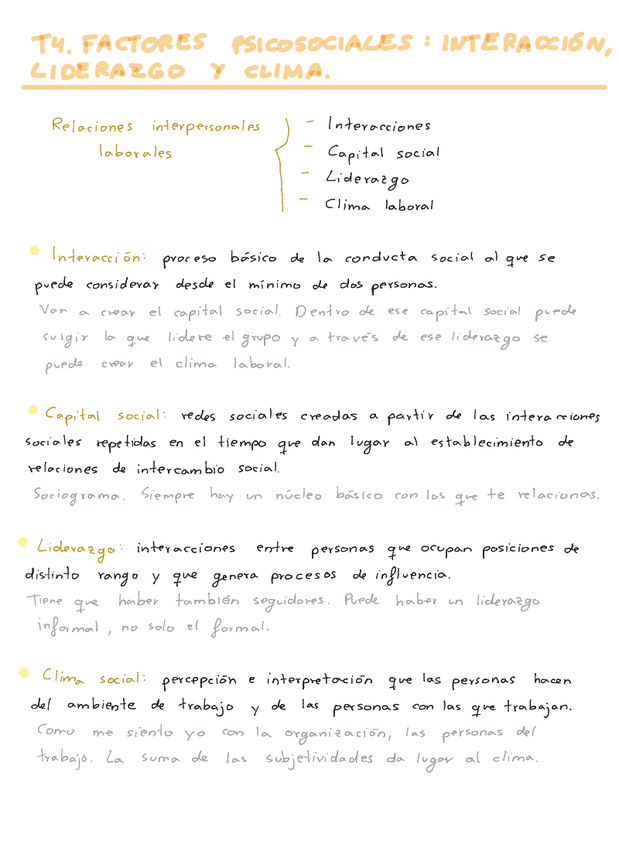 T4. FACTORES PSICOSOCIALES: INTERACCIÓN,
LIDERAZGO Y CLIMA.
Relaciones interpersonales
laborales
- Interacciones
- Capital social
- Liderazgo
- Clima laboral
Interacción: proceso básico de la conducta social al que se
puede considerar desde el mínimo de dos personas.
Van a crear el capital social. Dentro de ese capital social puede
surgir la que lidere el grupo y a través de ese liderazgo se
puede crear el clima laboral.
Capital social: redes sociales creadas a partir de las interacciones
sociales repetidas en el tiempo que dan lugar al establecimiento de
relaciones de intercambio social.
Sociograma. Siempre hay un núcleo básico con los que te relacionas.
Liderazgo: interacciones entre personas que ocupan posiciones de
distinto rango y que genera procesos de influencia.
Tiene que haber también seguidores. Puede haber un liderazgo
informal, no solo el formal.
Clima social: percepción e interpretación que las personas hacen
del ambiente de trabajo y de las personas con las que trabajan.
Como me siento yo con la organización, las personas del
trabajo. La suma de las subjetividades da lugar al clima.